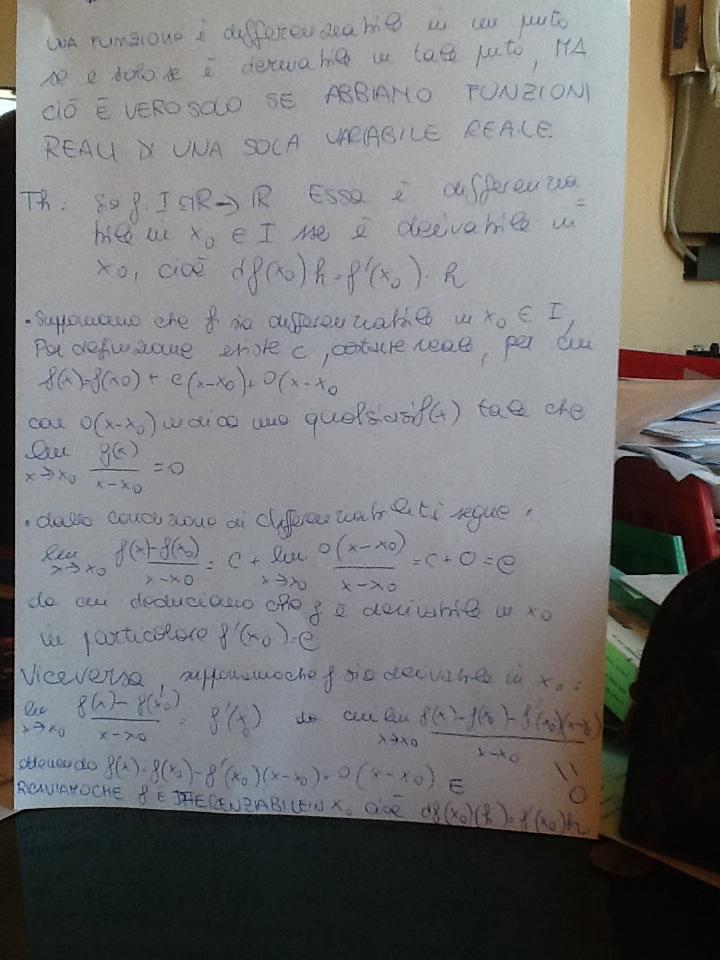 UNA FUNZIONE è differenziabile in un punto
se e solo se è derivabile in tale punto, MA
CIÒ È VERO SOLO SE ABBIAMO FUNZIONI
REALI DI UNA SOLA VARIABILE REALE.
Th: Sia f: I ⊆ R → R Essa è differenzia
bile in x₀ ∈ I sse è derivabile in
x₀, cioè df(x₀)h = f'(x₀)·h
• Supponiamo che f sia differenziabile in x₀ ∈ I,
Per definizione esiste c, costante reale, per cui
f(x)=f(x₀) + c(x-x₀) + o(x-x₀
con o(x-x₀) indico una qualsiasi f(x) tale che
lim x→x₀ g(x)/(x-x₀) = 0
• dalla condizione di differenziabilità segue:
lim x→x₀ f(x)-f(x₀)/(x-x₀) = c + lim x→x₀ o(x-x₀)/(x-x₀) = c + 0 = c
da cui deduciamo che f è derivabile in x₀
in particolare f'(x₀) = c
Viceversa, supponiamo che f sia derivabile in x₀:
lim x→x₀ f(x)-f(x₀)/(x-x₀) = f'(x₀) da cui lim x→x₀ f(x)-f(x₀)-f'(x₀)(x-x₀)/(x-x₀)
= 0
ottenendo f(x)-f(x₀)-f'(x₀)(x-x₀) = o(x-x₀) E
RICAVIAMO CHE f È DIFFERENZIABILE IN x₀ cioè df(x₀)(h) = f'(x₀)h